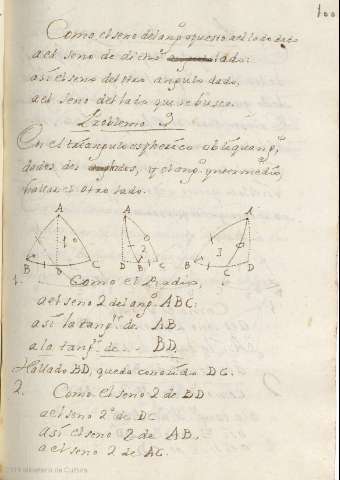 100
Como el seno del ang.º opuesto al lado dado
a el seno de dicho lado:
asi el seno del otro angulo dado,
a el seno del lado que se busca.
Problema 3
En el triangulo espherico obliquang.º,
dados dos lados, y el ang.º intermedio,
hallar el otro lado.
A A A
1 2 3
B D C D B C B C D
1. Como el Radio,
a el seno 2 del ang.º ABC:
asi la tang.te de AB.
a la tang.te de - - BD.
Hallado BD, queda conocido DC.
2. Como el seno 2 de BD
a el seno 2º de DC
asi el seno 2 de AB.
a el seno 2 de AC.
Ministerio de Cultura